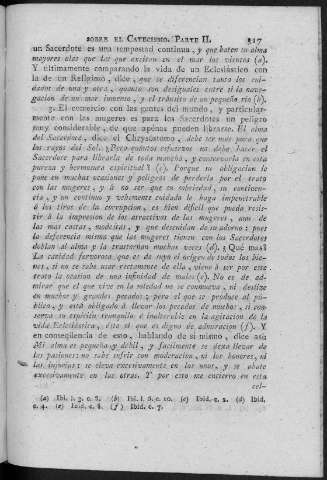 SOBRE EL CATECISMO. PARTE II. 317
un Sacerdote es una tempestad continua, y que baten su alma
mayores olas que las que excitan en el mar los vientos (a).
Y últimamente comparando la vida de un Eclesiástico con
la de un Religioso, dice, que se diferencian tanto los cui-
dados de una y otra, quanto son desiguales entre sí la nave-
gacion de un mar inmenso, y el tránsito de un pequeño rio (b).
3. El comercio con las gentes del mundo, y particular-
mente con las mugeres es para los Sacerdotes un peligro
muy considerable, de que apenas pueden librarse. El alma
del Sacerdote, dice el Chrysóstomo, debe ser mas pura que
los rayos del Sol. ¿Pero quántos esfuerzos no debe hacer el
Sacerdote para librarla de toda mancha, y conservarla en esta
pureza y hermosura espiritual? (c). Porque su obligacion le
pone en muchas ocasiones y peligros de perderla por el trato
con las mugeres, y á no ser que su sobriedad, su continen-
cia, y un continuo y vehemente cuidado le haga impenetrable
á los tiros de la corrupcion, es bien dificil que pueda resis-
tir á la impresion de los atractivos de las mugeres, aun de
las mas castas, modestas, y que descuidan de su adorno: pues
la deferencia misma que las mugeres tienen con los Sacerdotes
doblan al alma y la trastornan muchas veces (d). ¡Qué mas!
La caridad fervorosa, que es de suyo el orígen de todos los bie-
nes, si no se sabe usar rectamente de ella, viene á ser por este
trato la ocasion de una infinidad de males (e). No es de ad-
mirar que el que vive en la soledad no se conmueva, ni deslize
en muchos y grandes pecados; pero el que se produce al pú-
blico, y está obligado á llevar los pecados de mucho, si con-
serva su espíritu tranquilo é inalterable en la agitacion de la
vida Eclesiástica, éste sí que es digno de admiracion (f). Y
en conseqüencia de esto, hablando de sí mismo, dice así:
Mi alma es pequeña y debil, y facilmente se dexa llevar de
las pasiones: no sabe sufrir con moderacion, ni los honores, ni
las injurias: se eleva excesivamente en los unos, y se abate
excesivamente en las otras. Y por esto me encierro en esta
cel-
(a) Ibi. l. 3. c. 8. (b) Ibi. l. 6. c. 10. (c) Ibid. c. 2. (d) Ibid.
c. 4. (e) Ibid. c. 8. (f) Ibid. c. 7.